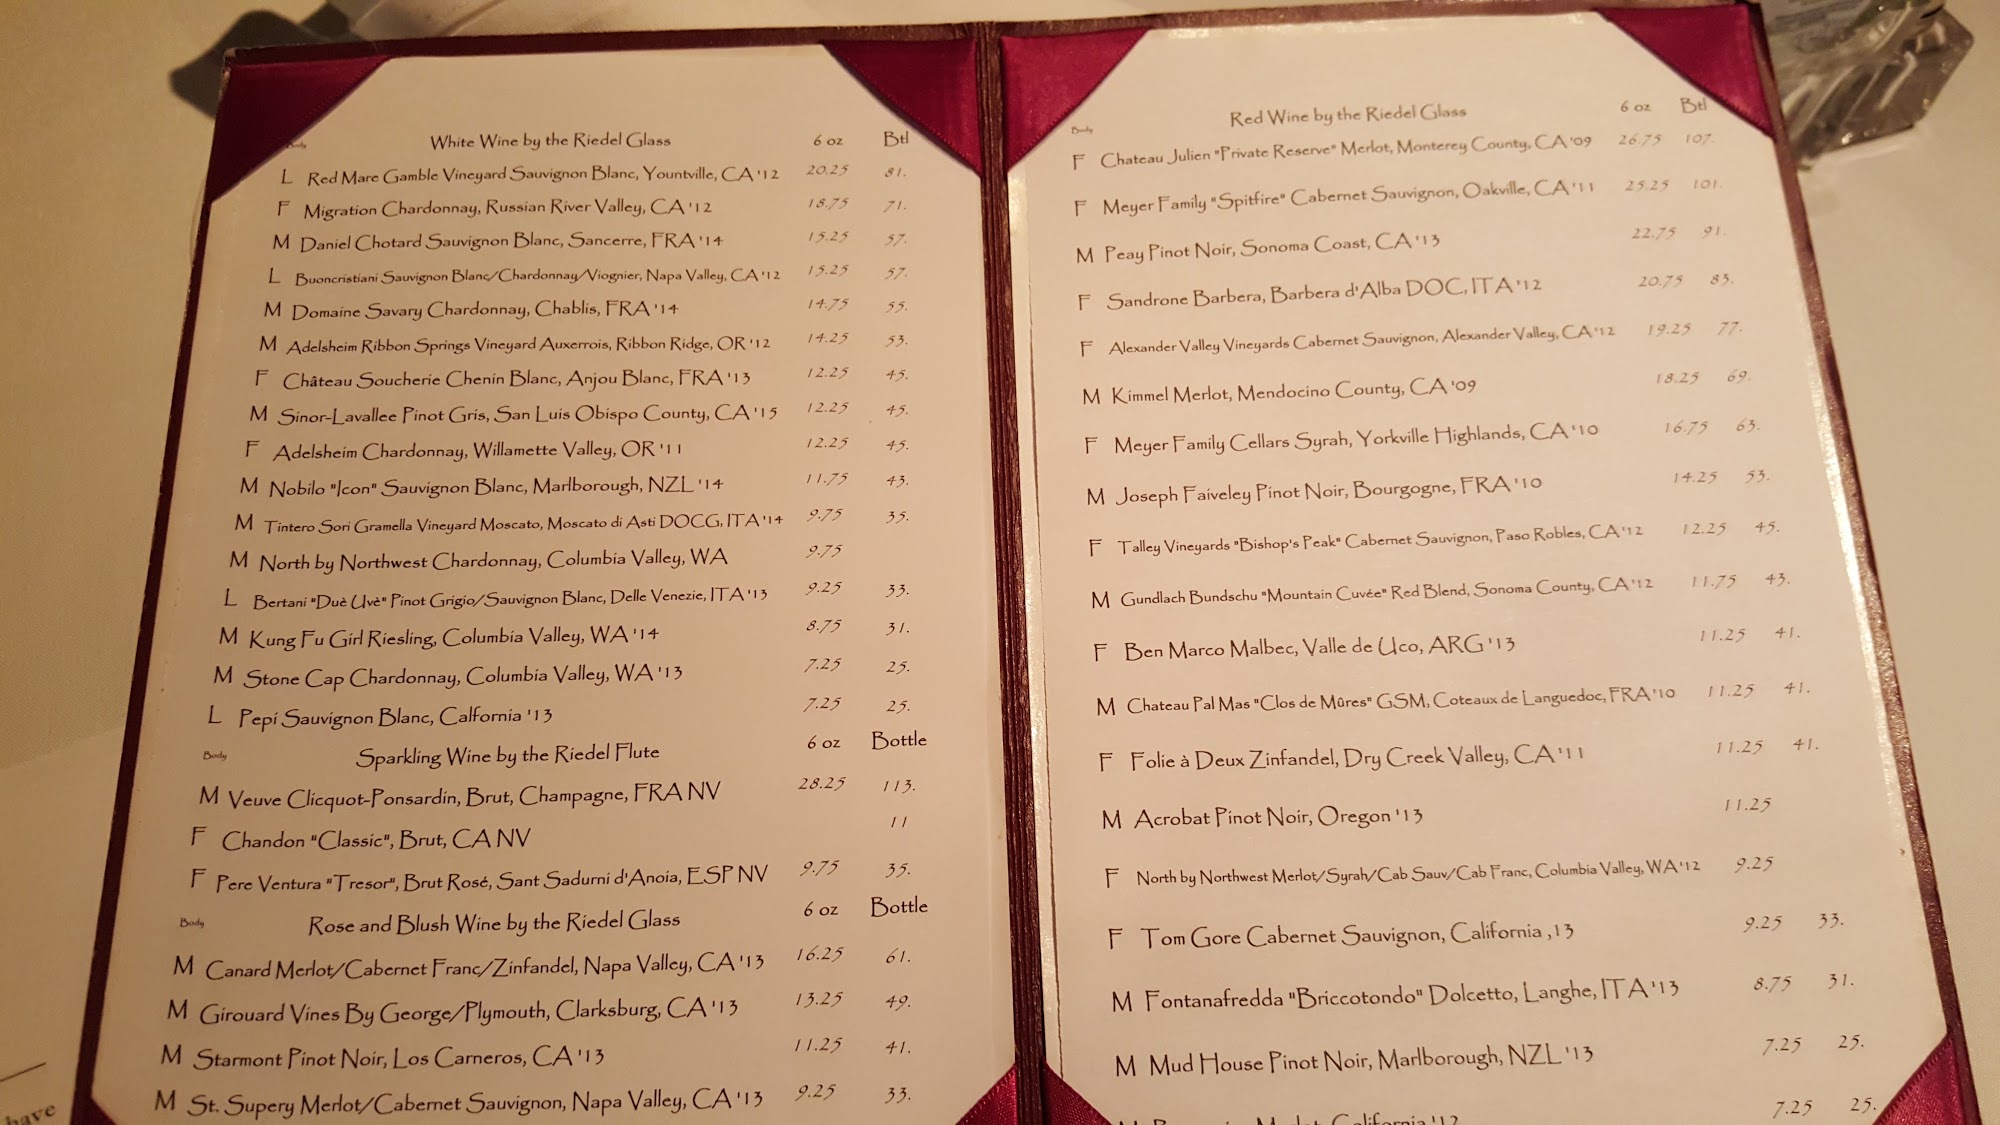 Body White Wine by the Riedel Glass 6 oz Btl
L Red Mare Gamble Vineyard Sauvignon Blanc, Yountville, CA '12 20.25 81.
F Migration Chardonnay, Russian River Valley, CA '12 18.75 71.
M Daniel Chotard Sauvignon Blanc, Sancerre, FRA '14 15.25 57.
L Buoncristiani Sauvignon Blanc/Chardonnay/Viognier, Napa Valley, CA '12 15.25 57.
M Domaine Savary Chardonnay, Chablis, FRA '14 14.75 55.
M Adelsheim Ribbon Springs Vineyard Auxerrois, Ribbon Ridge, OR '12 14.25 53.
F Château Soucherie Chenin Blanc, Anjou Blanc, FRA '13 12.25 45.
M Sinor-Lavallee Pinot Gris, San Luis Obispo County, CA '15 12.25 45.
F Adelsheim Chardonnay, Willamette Valley, OR '11 12.25 45.
M Nobilo "Icon" Sauvignon Blanc, Marlborough, NZL '14 11.75 43.
M Tintero Sori Gramella Vineyard Moscato, Moscato di Asti DOCG, ITA '14 9.75 35.
M North by Northwest Chardonnay, Columbia Valley, WA 9.75
L Bertani "Duè Uvè" Pinot Grigio/Sauvignon Blanc, Delle Venezie, ITA '13 9.25 33.
M Kung Fu Girl Riesling, Columbia Valley, WA '14 8.75 31.
M Stone Cap Chardonnay, Columbia Valley, WA '13 7.25 25.
L Pepi Sauvignon Blanc, Calfornia '13 7.25 25.
Body Sparkling Wine by the Riedel Flute 6 oz Bottle
M Veuve Clicquot-Ponsardin, Brut, Champagne, FRA NV 28.25 113.
F Chandon "Classic", Brut, CA NV 11
F Pere Ventura "Tresor", Brut Rosé, Sant Sadurni d'Anoia, ESP NV 9.75 35.
Body Rose and Blush Wine by the Riedel Glass 6 oz Bottle
M Canard Merlot/Cabernet Franc/Zinfandel, Napa Valley, CA '13 16.25 61.
M Girouard Vines By George/Plymouth, Clarksburg, CA '13 13.25 49.
M Starmont Pinot Noir, Los Carneros, CA '13 11.25 41.
M St. Supery Merlot/Cabernet Sauvignon, Napa Valley, CA '13 9.25 33.
Body Red Wine by the Riedel Glass 6 oz Btl
F Chateau Julien "Private Reserve" Merlot, Monterey County, CA '09 26.75 107.
F Meyer Family "Spitfire" Cabernet Sauvignon, Oakville, CA '11 25.25 101.
M Peay Pinot Noir, Sonoma Coast, CA '13 22.75 91.
F Sandrone Barbera, Barbera d'Alba DOC, ITA '12 20.75 83.
F Alexander Valley Vineyards Cabernet Sauvignon, Alexander Valley, CA '12 19.25 77.
M Kimmel Merlot, Mendocino County, CA '09 18.25 69.
F Meyer Family Cellars Syrah, Yorkville Highlands, CA '10 16.75 63.
M Joseph Faiveley Pinot Noir, Bourgogne, FRA '10 14.25 53.
F Talley Vineyards "Bishop's Peak" Cabernet Sauvignon, Paso Robles, CA '12 12.25 45.
M Gundlach Bundschu "Mountain Cuvée" Red Blend, Sonoma County, CA '12 11.75 43.
F Ben Marco Malbec, Valle de Uco, ARG '13 11.25 41.
M Chateau Pal Mas "Clos de Mûres" GSM, Coteaux de Languedoc, FRA '10 11.25 41.
F Folie à Deux Zinfandel, Dry Creek Valley, CA '11 11.25 41.
M Acrobat Pinot Noir, Oregon '13 11.25
F North by Northwest Merlot/Syrah/Cab Sauv/Cab Franc, Columbia Valley, WA '12 9.25
F Tom Gore Cabernet Sauvignon, California ,13 9.25 33.
M Fontanafredda "Briccotondo" Dolcetto, Langhe, ITA '13 8.75 31.
M Mud House Pinot Noir, Marlborough, NZL '13 7.25 25.
M Merlot, California '12 7.25 25.
have